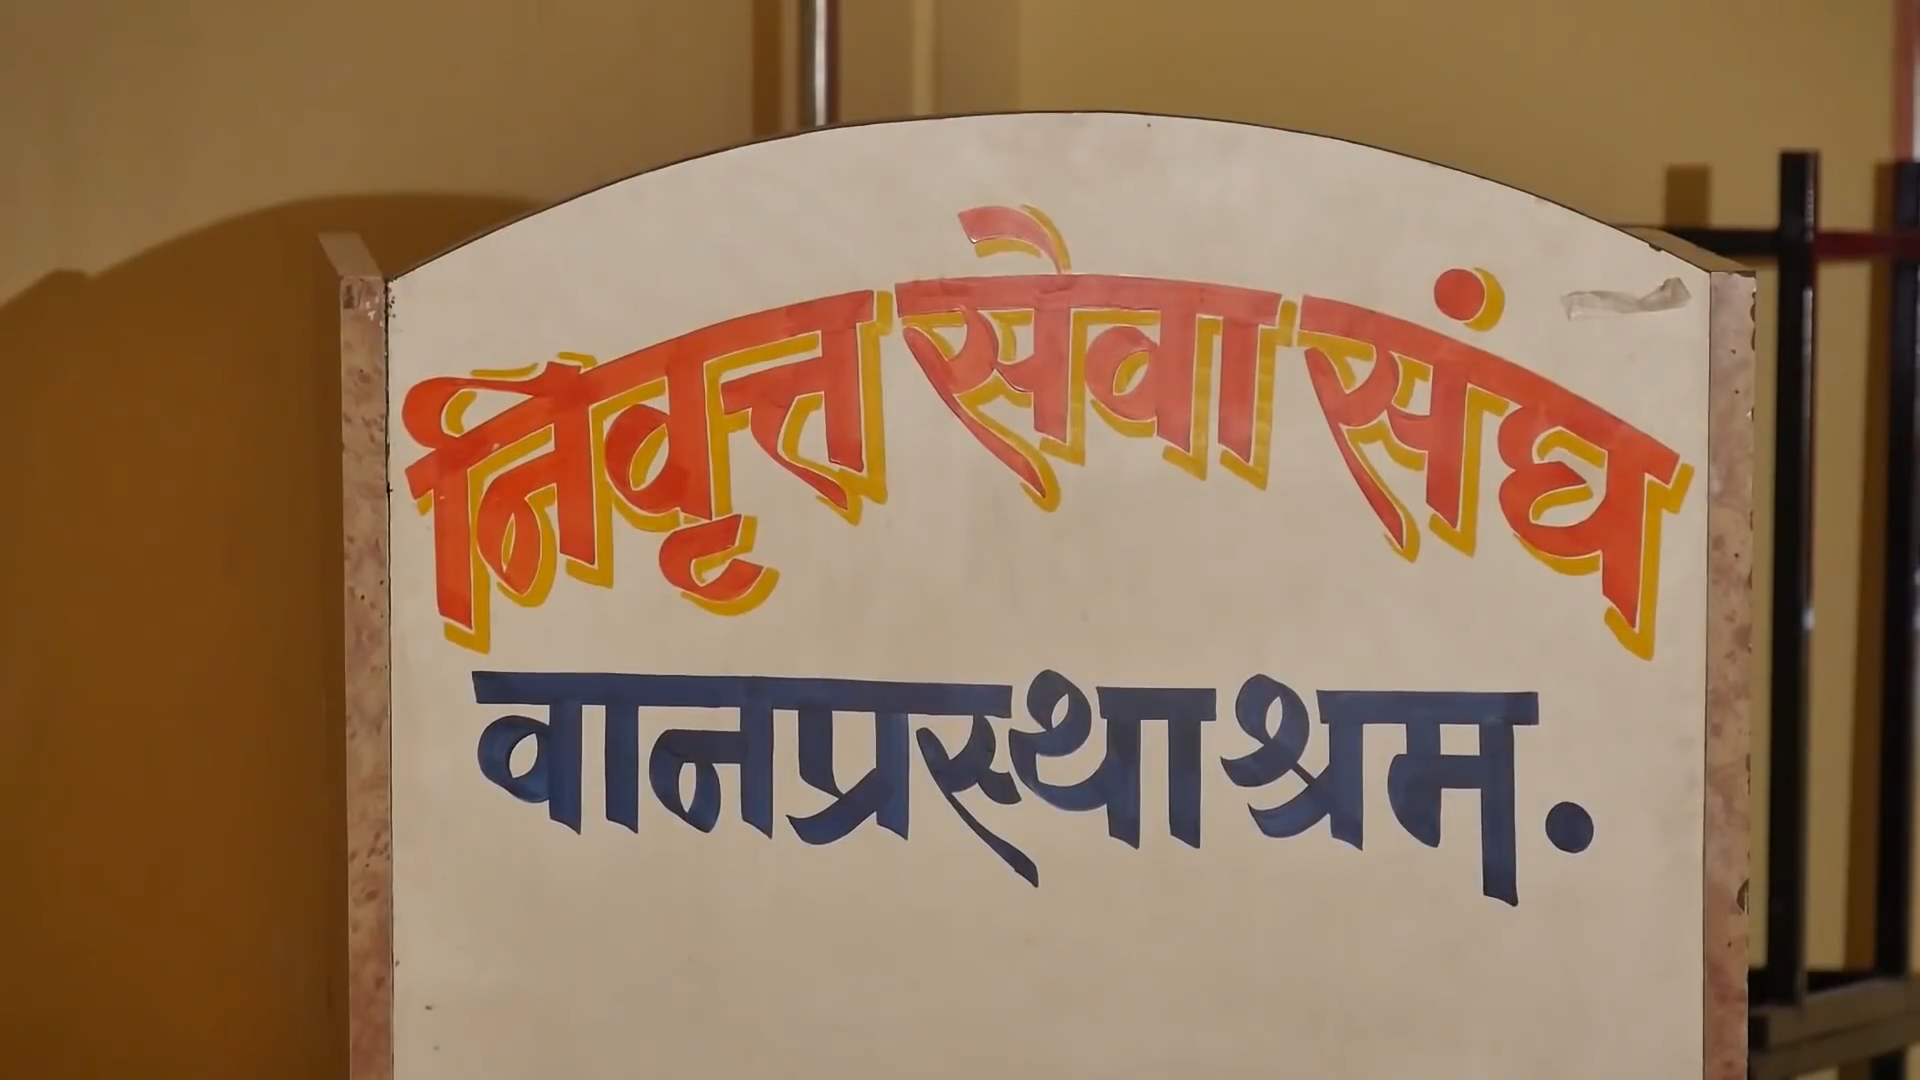 निवृत्त सेवा संघ
वानप्रस्थाश्रम.